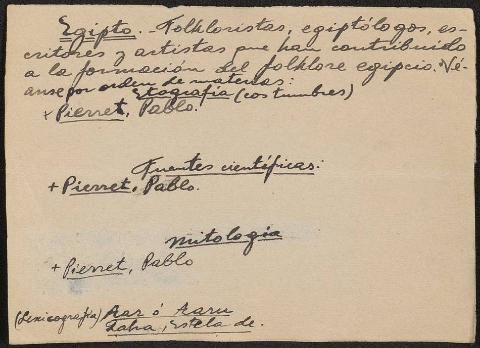 Egipto. - Folkloristas, egiptólogos, es-
critores y artistas que han contribuido
a la formación del folklore egipcio. Vé-
anse por orden de materias:
Etografía (costumbres)
+ Pierret, Pablo.
Fuentes científicas:
+ Pierret, Pablo.
Mitología
+ Pierret, Pablo
(Lexicografía) Aar ó Aaru
Zaha, Estela de.